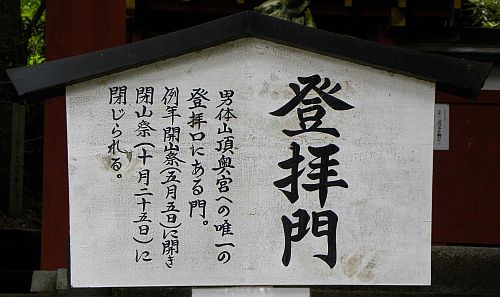 登拝門
男体山頂奥宮への唯一の
登拝口にある門。
例年開山祭(五月五日)に開き
閉山祭(十月二十五日)に
閉じられる。